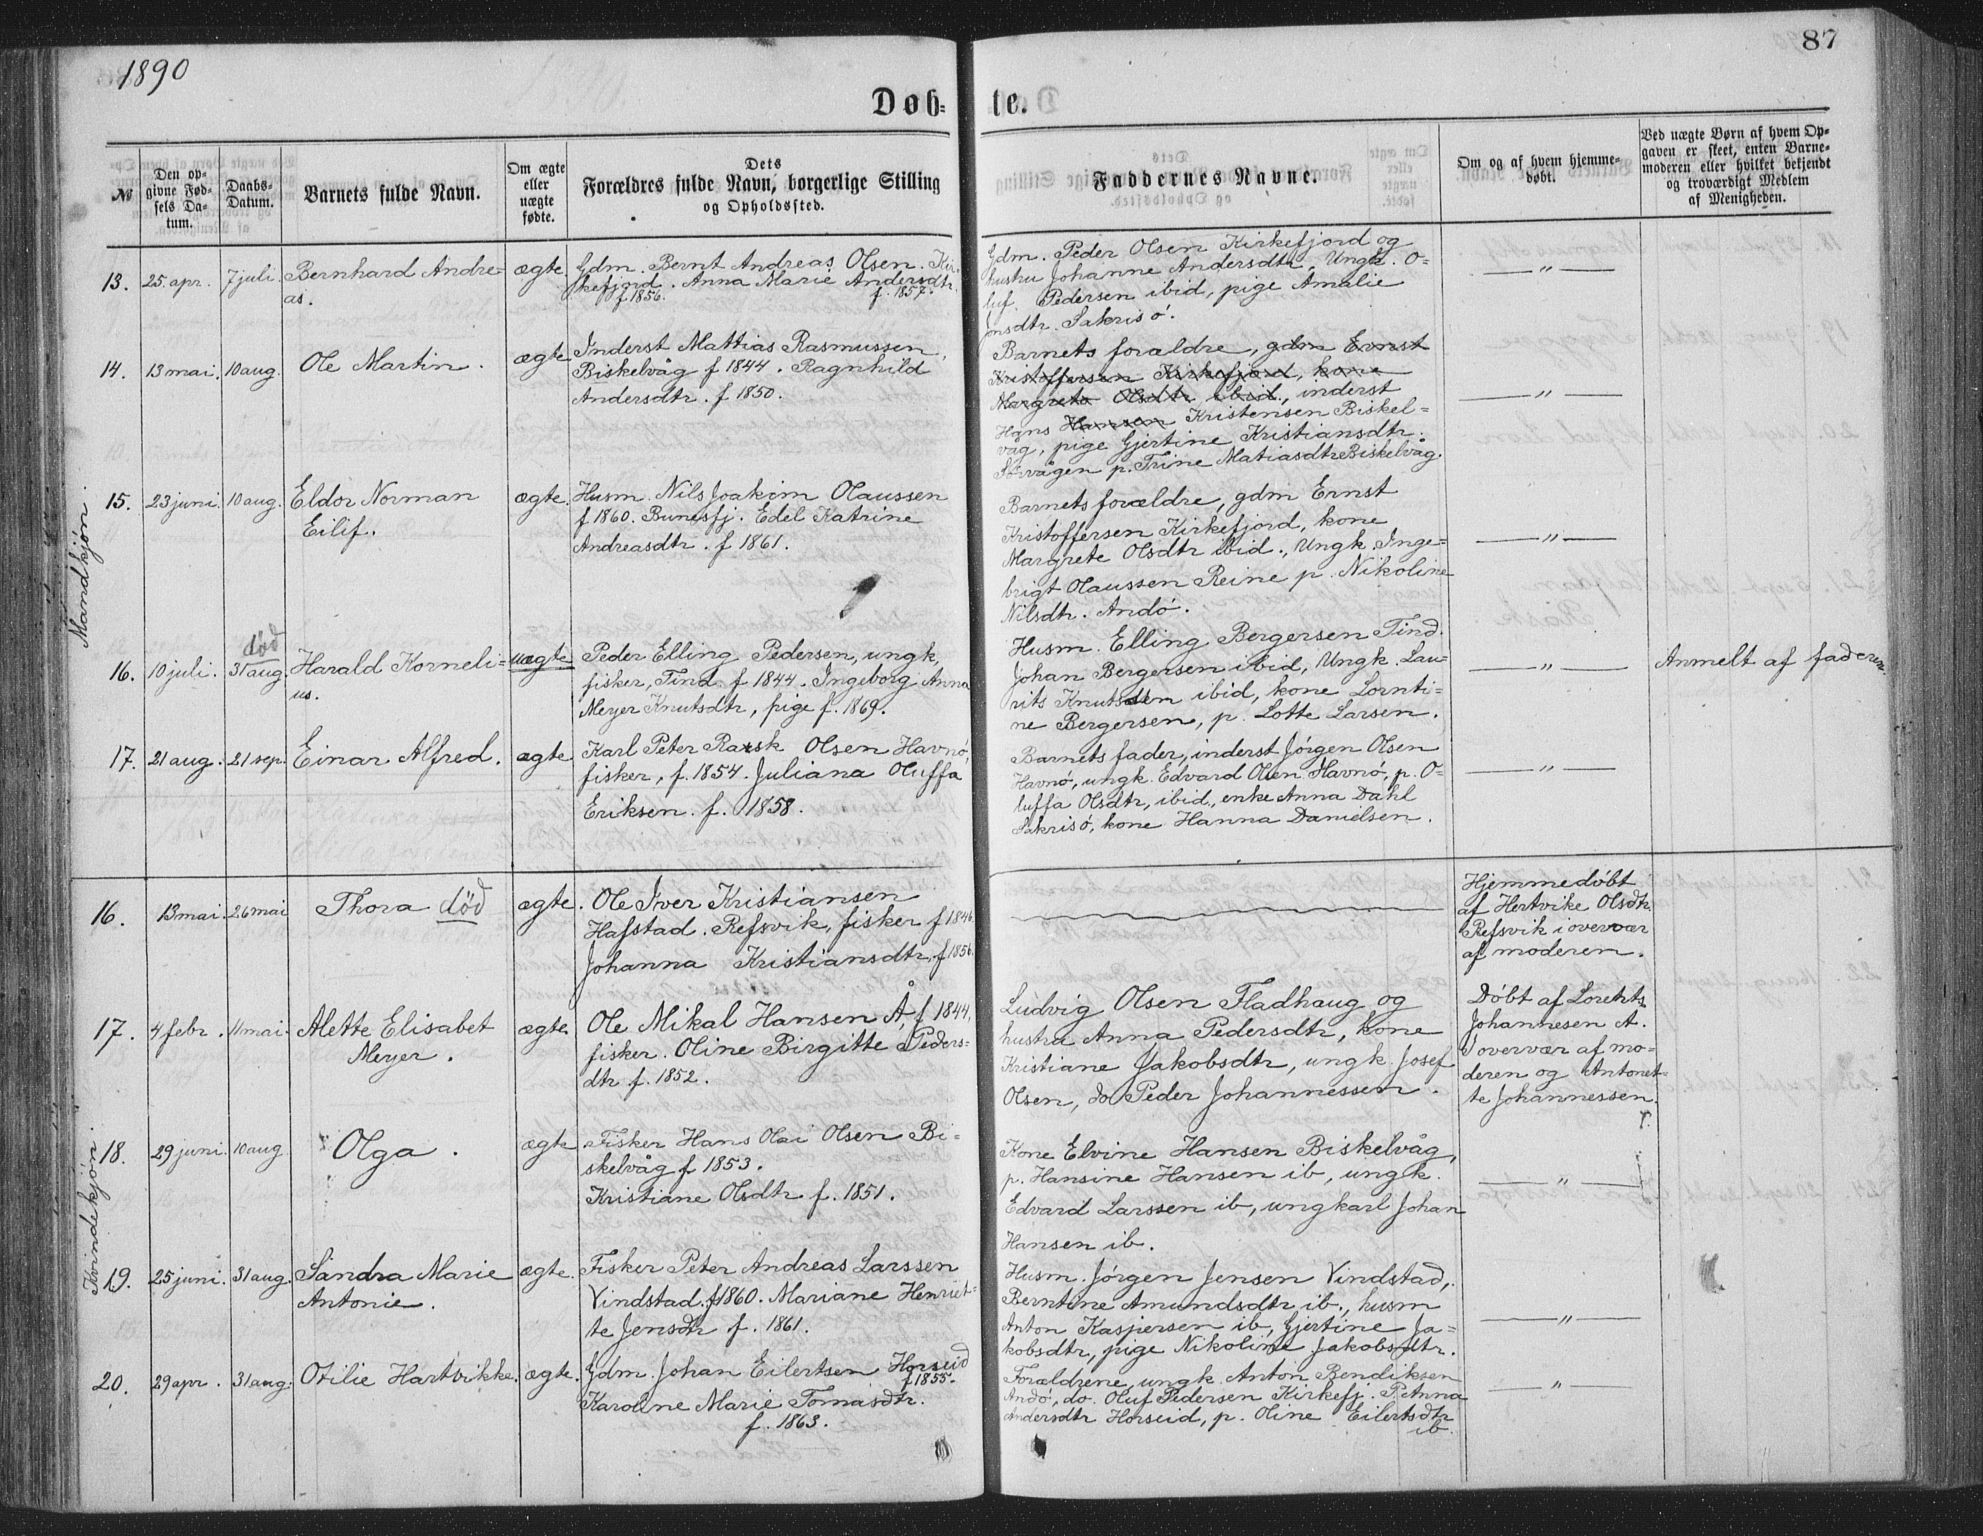 1890
87
Døb-
te.
№
Den op-
givne Fød-
sels Da-
tum.
Daabs-
Datum.
Barnets fulde Navn.
Om ægte
eller
uægte
fødte.
Dets
Forældres fulde Navn, borgerlige Stilling
og Opholdssted.
Faddernes Navne.
Om og af hvem hjemme-
døbt.
Ved uægte Børn af hvem Op-
gaven er skeet, enten Barne-
moderen eller hvilket bekjendt
og troværdigt Medlem
af Menigheden.
Mandkjøn.
13. 25 apr. 7 juli Bernhard Andre-
as.
ægte.
Gdm. Bernt Andreas Olsen. Kir-
kefjord. Anna Marie Andersdtr.
f. 1856. f. 1857.
Gdm. Peder Olsen Kirkefjord og
hustru Johanne Andersdtr, Ungk. O-
luf Pedersen ibid, pige Amalie
Jnsdtr. Sakrisø.
— " —
14. 13 mai. 10 aug. Ole Martin.
ægte
Inderst Mattias Rasmussen,
Biskelvåg f 1844. Ragnhild
Andersdtr. f 1850.
Barnets forældre, gdm Ernst
Kristoffersen Kirkefjord, kone
Margrete Olsdtr ibid., inderst
Hans Hansen Kristensen Biskel-
våg, pige Gjertine Kristiansdtr.
Sørvågen p. Trine Matiasdtr Biskelvåg.
— " —
15. 23 juni 10 aug. Eldor Norman
Eilif.
ægte.
Husm. Nils Joakim Olaussen
f 1860. Bunesfj. Edel Katrine
Andreasdtr. f 1861.
Barnets forældre, gdm Ernst
Kristoffersen Kirkefjord, kone
Margrete Olsdtr ibid., Ungk. Inge-
brigt Olaussen Reine p. Nikoline
Nilsdtr. Andø.
— " —
død
16. 10 juli. 31 aug. Harald Korneli-
us.
uægte
Peder Elling Pedersen, ungk,
fisker, Tind. f 1844. Ingeborg Anna
Meyer Knutsdtr, pige f. 1869.
Husm. Elling Bergersen Tind.
Johan Bergersen ibid, Ungk. Lau-
rits Knutsen ibid, kone Lornti-
ne Bergersen, p. Lotte Larsen.
— " —
Anmelt af faderen
17. 21 aug. 21 sep. Einar Alfred.
ægte
Karl Peter Rask Olsen Havnø,
fisker, f. 1854. Juliana Oluffa
Eriksen. f. 1858.
Barnets fader, inderst Jørgen Olsen
Havnø, ungk. Edvard Olsen Havnø, p. O-
luffa Olsdtr, ibid., enke Anna Dahl
Sakrisø, kone Hanna Danielsen.
— " —
Kvindekjøn.
16. 13 mai. 26 mai Thora død
ægte.
Ole Iver Kristiansen
Hafstad. Refsvik, fisker f 1846.
Johanna Kristiansdtr, f 1856.
Hjemmedøbt
af Hertvike Olsdtr.
Refsvik i overvær
af moderen.
17. 4 febr. 11 mai. Alette Elisabet
Meyer.
ægte.
Ole Mikal Hansen Å, f 1844,
fisker. Oline Birgitte Peders-
dtr f. 1852.
Ludvig Olsen Fladhaug og
hustru Anna Pedersdtr, kone
Kristiane Jakobsdtr, ungk. Josef
Olsen, do Peder Johannessen.
Døbt af Lorentz
Johannesen A.
I overvær af mo-
deren og Antonet-
te Johannessen.
18. 29 juni. 10 aug Olga.
ægte
Fisker Hans Olai Olsen Bi-
skelvåg f 1853.
Kristiane Olsdtr f. 1851.
Kone Elvine Hansen Biskelvåg,
p. Hansine Hansen ib, ungk.
Edvard Larssen ib, ungkarl Johan
Hansen ib.
— " —
19. 25 juni. 31 aug. Sandra Marie
Antonie.
ægte.
Fisker Peter Andreas Larssen
Vindstad. f 1860. Mariane Henriet-
te Jensdtr f. 1861.
Husm. Jørgen Jensen Vindstad,
Berntine Amundsdtr ib., husm
Anton Kaspersen ib, Gjertine Ja-
kobsdtr, pige Nikoline Jakobsdtr.
— " —
20. 29 apr. 31 aug. Otilie Hartvikke.
ægte.
Gdm. Johan Eilertsen Horseid
f 1855.
Karoline Marie Tomasdtr.
f. 1863.
Forældrene, ungk. Anton Bendiksen
Andø, do. Oluf Pedersen Kirkefj. P. Anna
Andersdtr Horseid, p. Oline Eilertsdtr
ib.
— " —